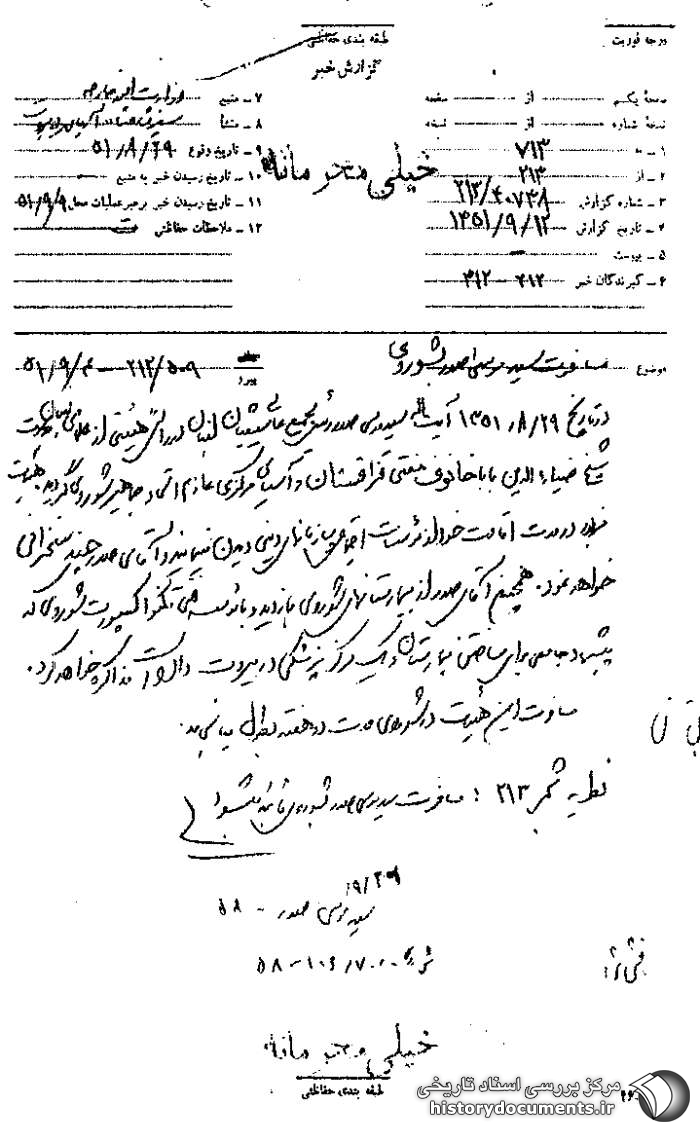 درجه فوریت
طبقه بندی حفاظتی
گزارش خبر
خیلی محرمانه
صفحه یکم از صفحه
نسخه شماره از نسخه
۱ - به ۷۱۳
۲ - از ۲۱۳
۳ - شماره گزارش ۲۱۳/۴۰۷۳۸
۴ - تاریخ گزارش ۱۳۵۱/۹/۱۲
۵ - پیوست
۶ - گیرندگان خبر ۲۱۲ - ۳۱۲
۷ - منبع وزارت امور خارجه
۸ - منشأ
۹ - تاریخ وقوع ۵۱/۸/۲۹
۱۰ - تاریخ رسیدن خبر به منبع
۱۱ - تاریخ رسیدن خبر برهبر عملیات محل ۵۱/۹/۹
۱۲ - ملاحظات حفاظتی
موضوع مسافرت سید موسی صدر بشوروی
پیرو ۲۱۲/۵۰۹ - ۵۱/۹/۴
در تاریخ ۱۳۵۱/۸/۲۹ آیت اله سید موسی صدر رئیس مجمع عالی شیعیان لبنان در رأس هیئتی از علمای لبنان بدعوت
شیخ ضیاء الدین باباخانوف مفتی قزاقستان و آسیای مرکزی عازم اتحاد جماهیر شوروی گردید هیئت
مزبور در مدت اقامت خود از مؤسسات اجتماعی و سازمانهای دینی دیدن مینماید و آقای صدر چند سخنرانی
خواهد نمود. همچنین آقای صدر از بیمارستانهای شوروی بازدید و با مؤسسه تکنو اکسپورت شوروی که
پیشنهاد جامعی برای ساختن بیمارستان و یک مرکز پزشکی در بیروت داده است مذاکره خواهد کرد.
مسافرت این هیئت در شوروی مدت دو هفته بطول میانجامد.
نظریه ۲۱۳ : مسافرت سید موسی صدر بشوروی تأیید میشود
۹/۲۹
سید موسی صدر - ۵۸
۵۸-۱۰۶/۷۰۰۰
خیلی محرمانه
طبقه بندی حفاظتی
مرکز بررسی اسناد تاریخی
historydocuments.ir